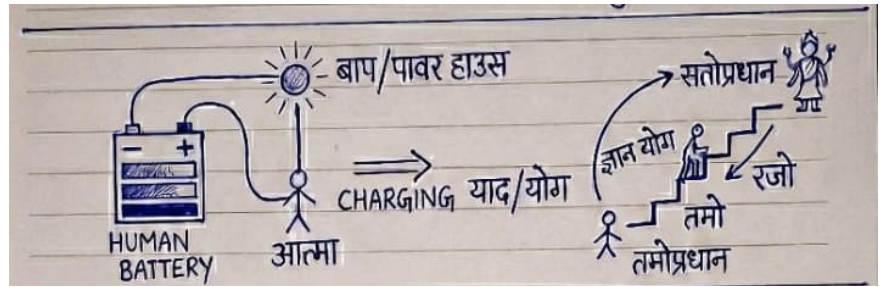 बाप/पावर हाउस
HUMAN
BATTERY
आत्मा
CHARGING याद/योग
सतोप्रधान
ज्ञान योग
रजो
तमो
तमोप्रधान